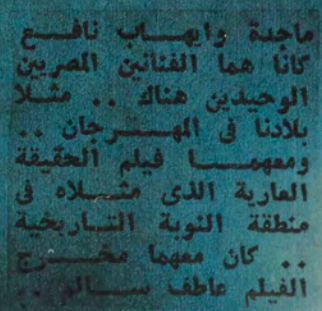 ماجدة وايهاب نافع
كانا هما الفنانين المصريين
الوحيدين هناك .. مثلا
بلادنا فى المهرجان ..
ومعهما فيلم الحقيقة
العارية الذى مثلاه فى
منطقة النوبة التاريخية
.. كان معهما مخرج
الفيلم عاطف سالم ..